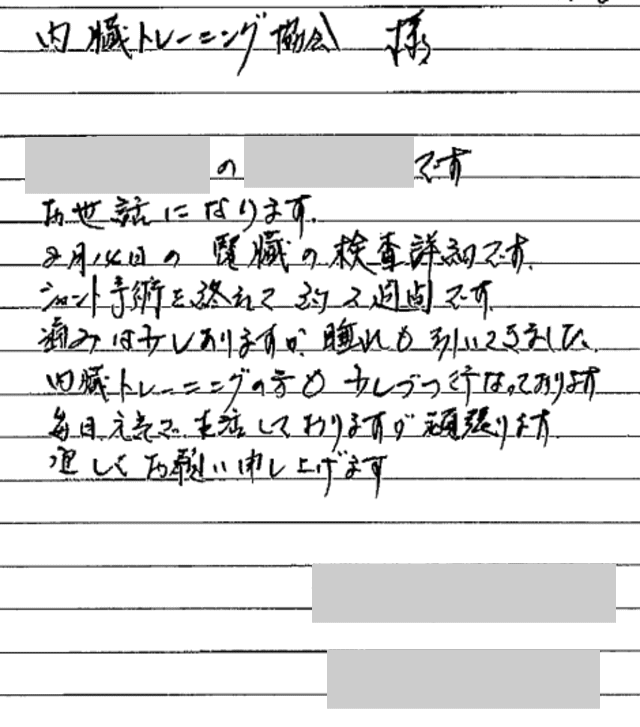 内臓トレーニング協会 様
の です
お世話になります.
2月14日の腎臓の検査詳細です.
シャント手術を終えて約2週間です.
痛みは少しありますが、腫れも引いてきました.
内臓トレーニングの方も少しづつ行なっております
毎日元気で生活しておりますが頑張ります.
宜しくお願い申し上げます